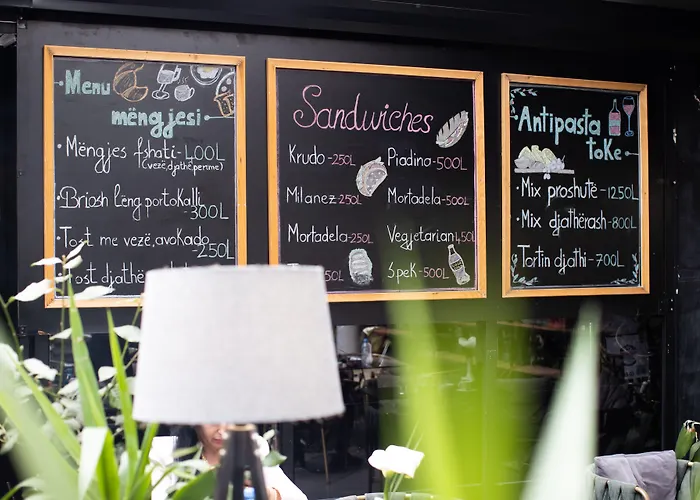 Menu
mëngjesi
· Mëngjes fshati - 400L
(vezë, djathë, perime)
· Briosh lëng portokalli
300L
· Tost me vezë, avokado
250L
Tost djathë
Sandwiches
Krudo - 250L
Milanez - 250L
Mortadela - 250L
Piadina - 500L
Mortadela - 500L
Vegjetarian 450L
Spek - 500L
Antipasta
toKe
· Mix proshutë - 1250L
· Mix djathërash - 800L
Tortin djathi - 700L